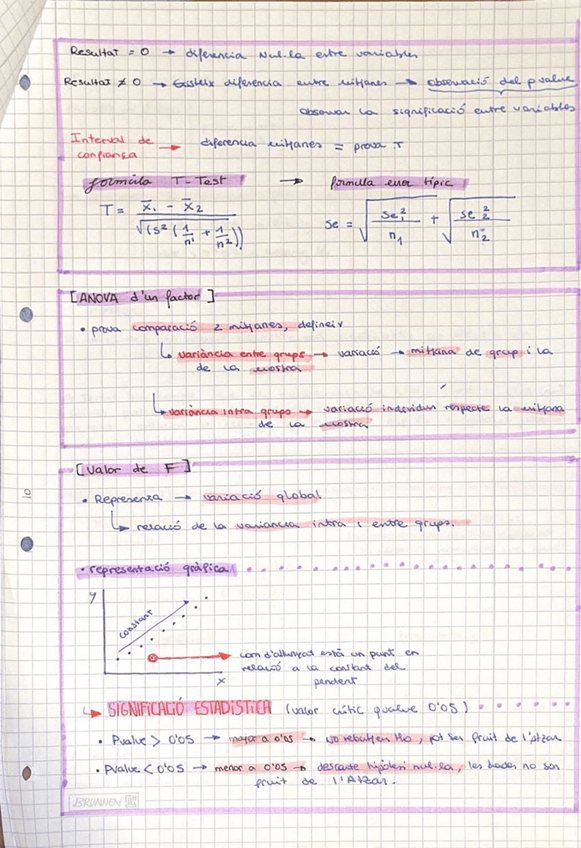 Resultat = 0 → diferencia Nul·la entre variables
Resultat ≠ 0 → Existeix diferencia entre mitjanes → observació del pvalue
observar la significació entre variables
Interval de confiança → diferencia mitjanes = prova T
formula T-Test → formula error típic
T = x̄₁ - x̄₂ / √(s² (1/n¹ + 1/n²))
se = √(se₁²/n₁) + √(se₂²/n₂)
[ANOVA d'un factor]
• prova comparació 2 mitjanes, defineix
↳ variància entre grups → variació → mitjana de grup i la
de la mostra
↳ variància intra grups → variació individus respecte la mitjana
de la mostra
[Valor de F]
• Representa → variació global
↳ relació de la variancia intra i entre grups.
• representació gràfica
y
constant
com d'allunyat està un punt en
relació a la constant del
pendent
x
↳ SIGNIFICACIÓ ESTADÍSTICA (valor crític pvalue 0'05)
• Pvalue > 0'05 → major a 0'05 → NO rebutjem Ho, pot ser fruit de l'atzar
• Pvalue < 0'05 → menor a 0'05 → descarte hipòtesi nul·la, les dades no son
fruit de l'Atzar.
BRUNNEN